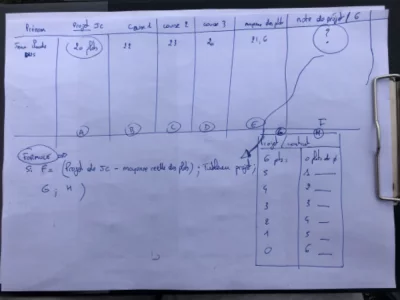 Prénom Projet Jc course 1 course 2 course 3 moyenne des plts note de projet / 6
Jean 20 plts 22 21 20 21,6 ?
A B C D E G H I
FORMULE
Si E = (Projet de Jc - moyenne réelle des plts) ; Tableau projet ;
G ; H )
Projet / contrat
6 pts : 0 plts de
5 1
4 2
3 3
2 4
1 5
0 6